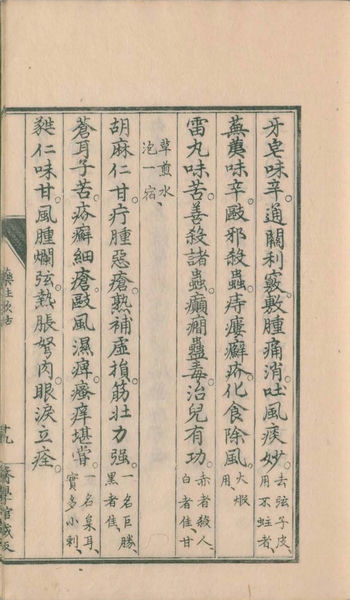 牙皂味辛通關利竅敷腫痛消吐風痰妙去弦子皮用不蛀者
蕪荑味辛敺邪殺蟲痔瘻癬疥化食除風火煅用
雷丸味苦善殺諸蟲癲癇蠱毒治兒有功赤者殺人白者佳甘
草煎水泡一宿
胡麻仁甘疔腫惡瘡熟補虛損筋壯力强一名巨勝黑者佳
蒼耳子苦疥癬細瘡敺風濕痺瘙痒堪嘗一名枲耳實多小刺
蕤仁味甘風腫爛弦熱脹弩肉眼淚立痊
藥性歌括